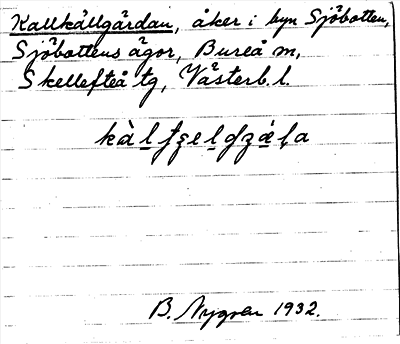 Kallkällgärdan, åker i byn Sjöbotten,
Sjöbottens ägor, Bureå sn,
Skellefteå tg, Västerb. l.
B. Nygren 1932.